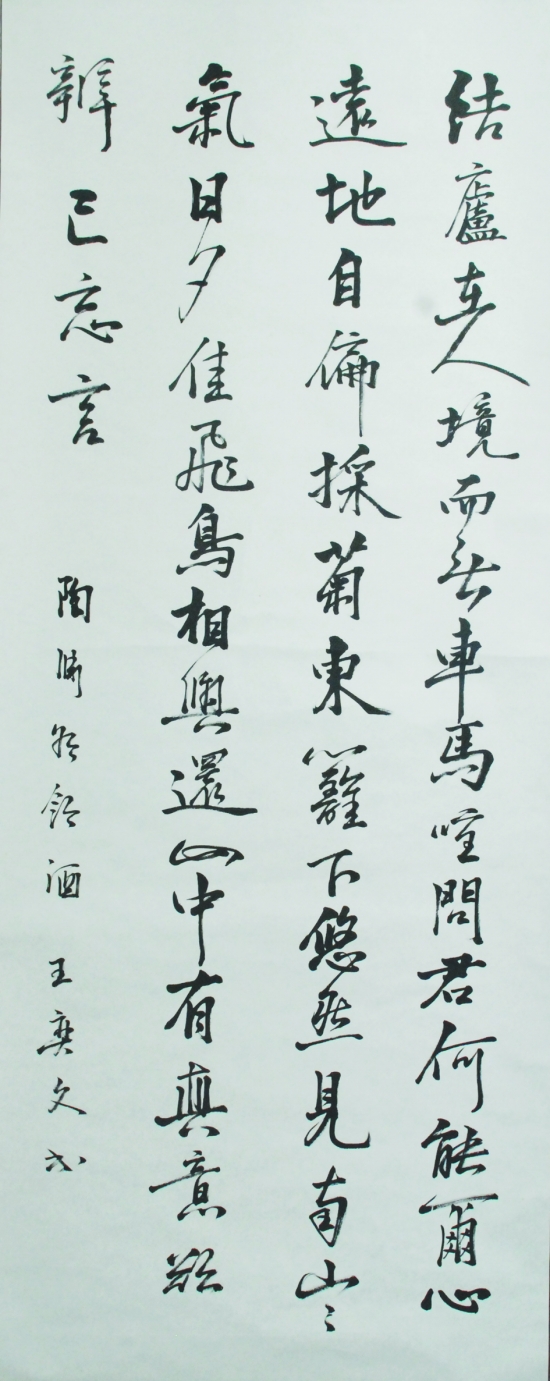 結廬在人境而無車馬喧問君何能爾心
遠地自偏採菊東籬下悠然見南山〻
氣日夕佳飛鳥相與還此中有真意欲
辨已忘言 陶飲酒 王奕文书